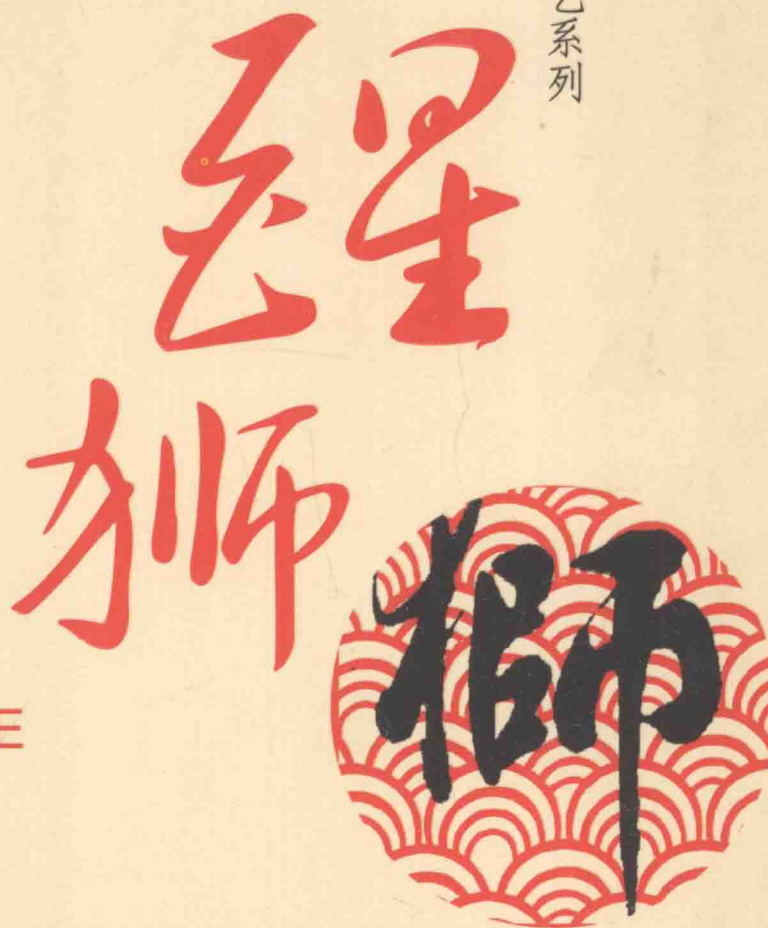 系列
醒
狮
獅